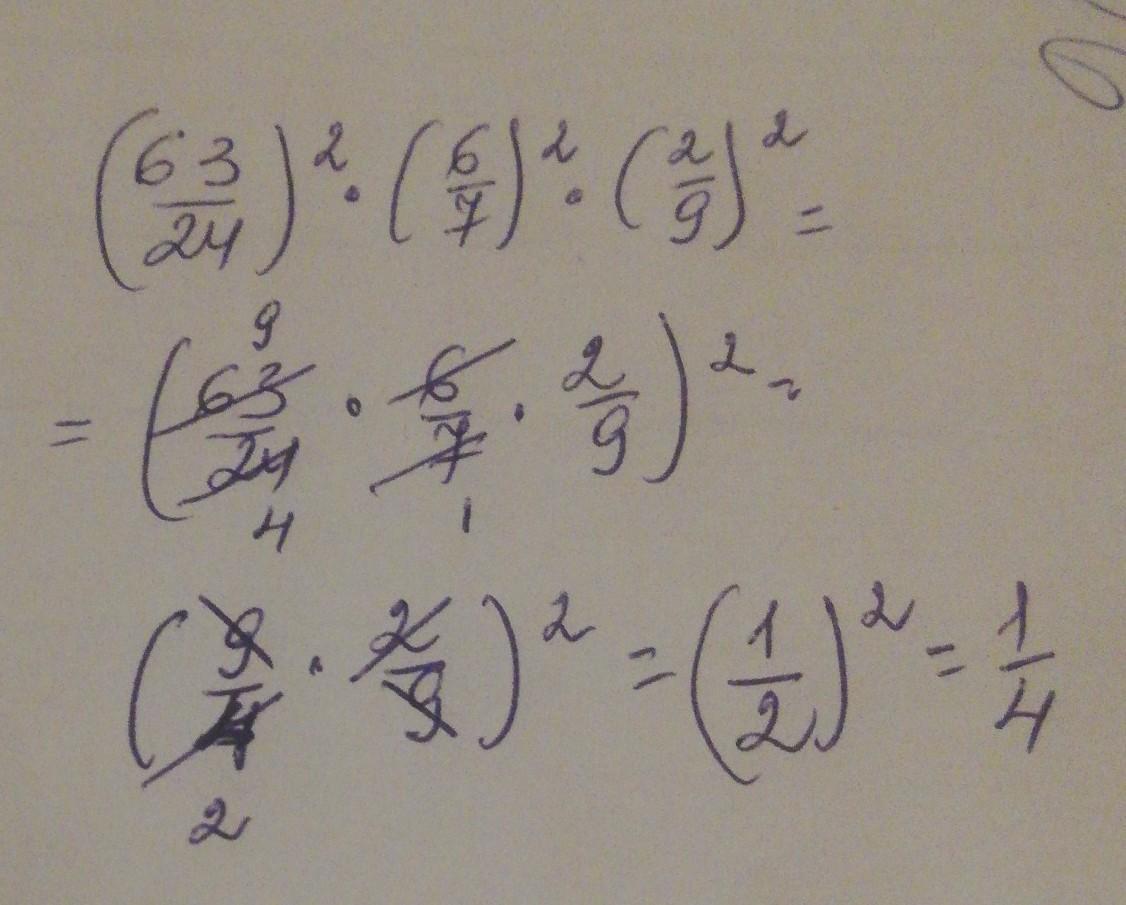 (63/24)² · (6/7)² · (2/9)² =
= (63/24 · 6/7 · 2/9)² =
(9/4 · 2/9)² = (1/2)² = 1/4